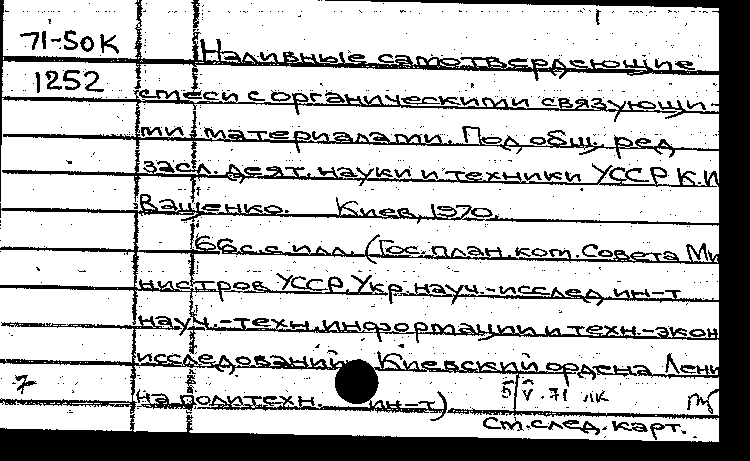 71-50К
1252
Наливные самотвердеющие
смеси с органическими связующи-
ми материалами. Под общ. ред
засл. деят. науки и техники УССР К.И
Ващенко. Киев, 1970.
66 с. с илл. (Гос. план. ком. Совета Ми
нистров УССР. Укр. науч.-исслед. ин-т
науч.-техн. информации и техн.-экон
исследований. Киевский ордена Лени
на политехн. ин-т).
7
5/V.71 ЛК
См. след. карт.